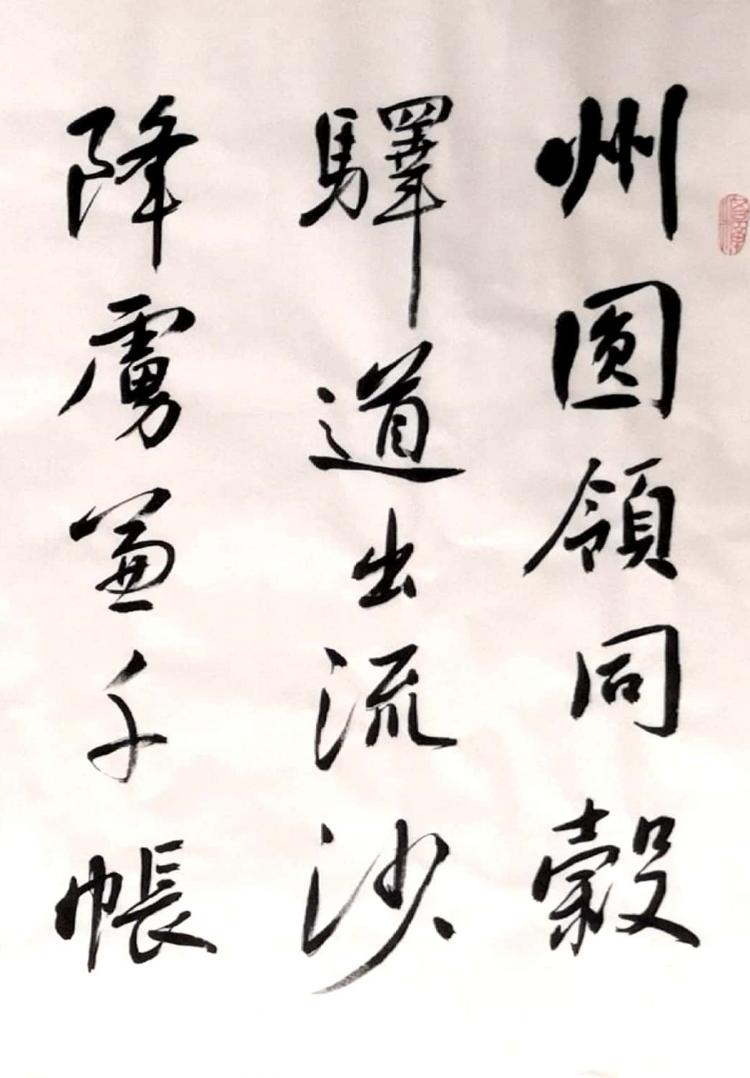 州圓領同穀
驛道出流沙
降虜兼千帳